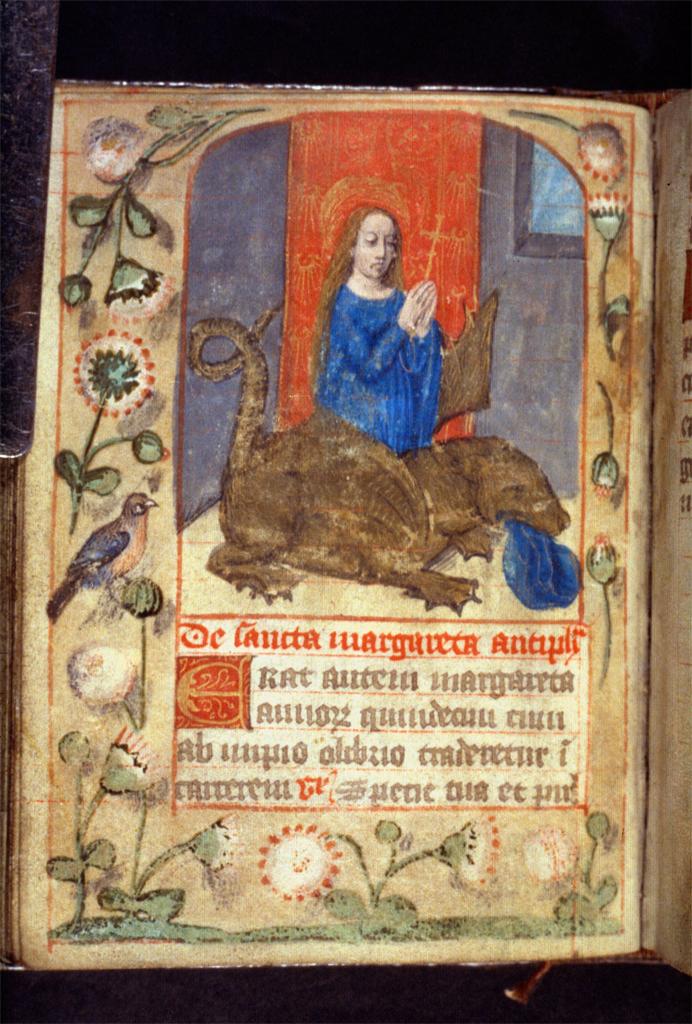 De sancta margareta antiph
Erat autem margareta
annorꝝ quindecim cum
ab impio olibrio traderetur ī
carcerem vꝭ Specie tua et pul